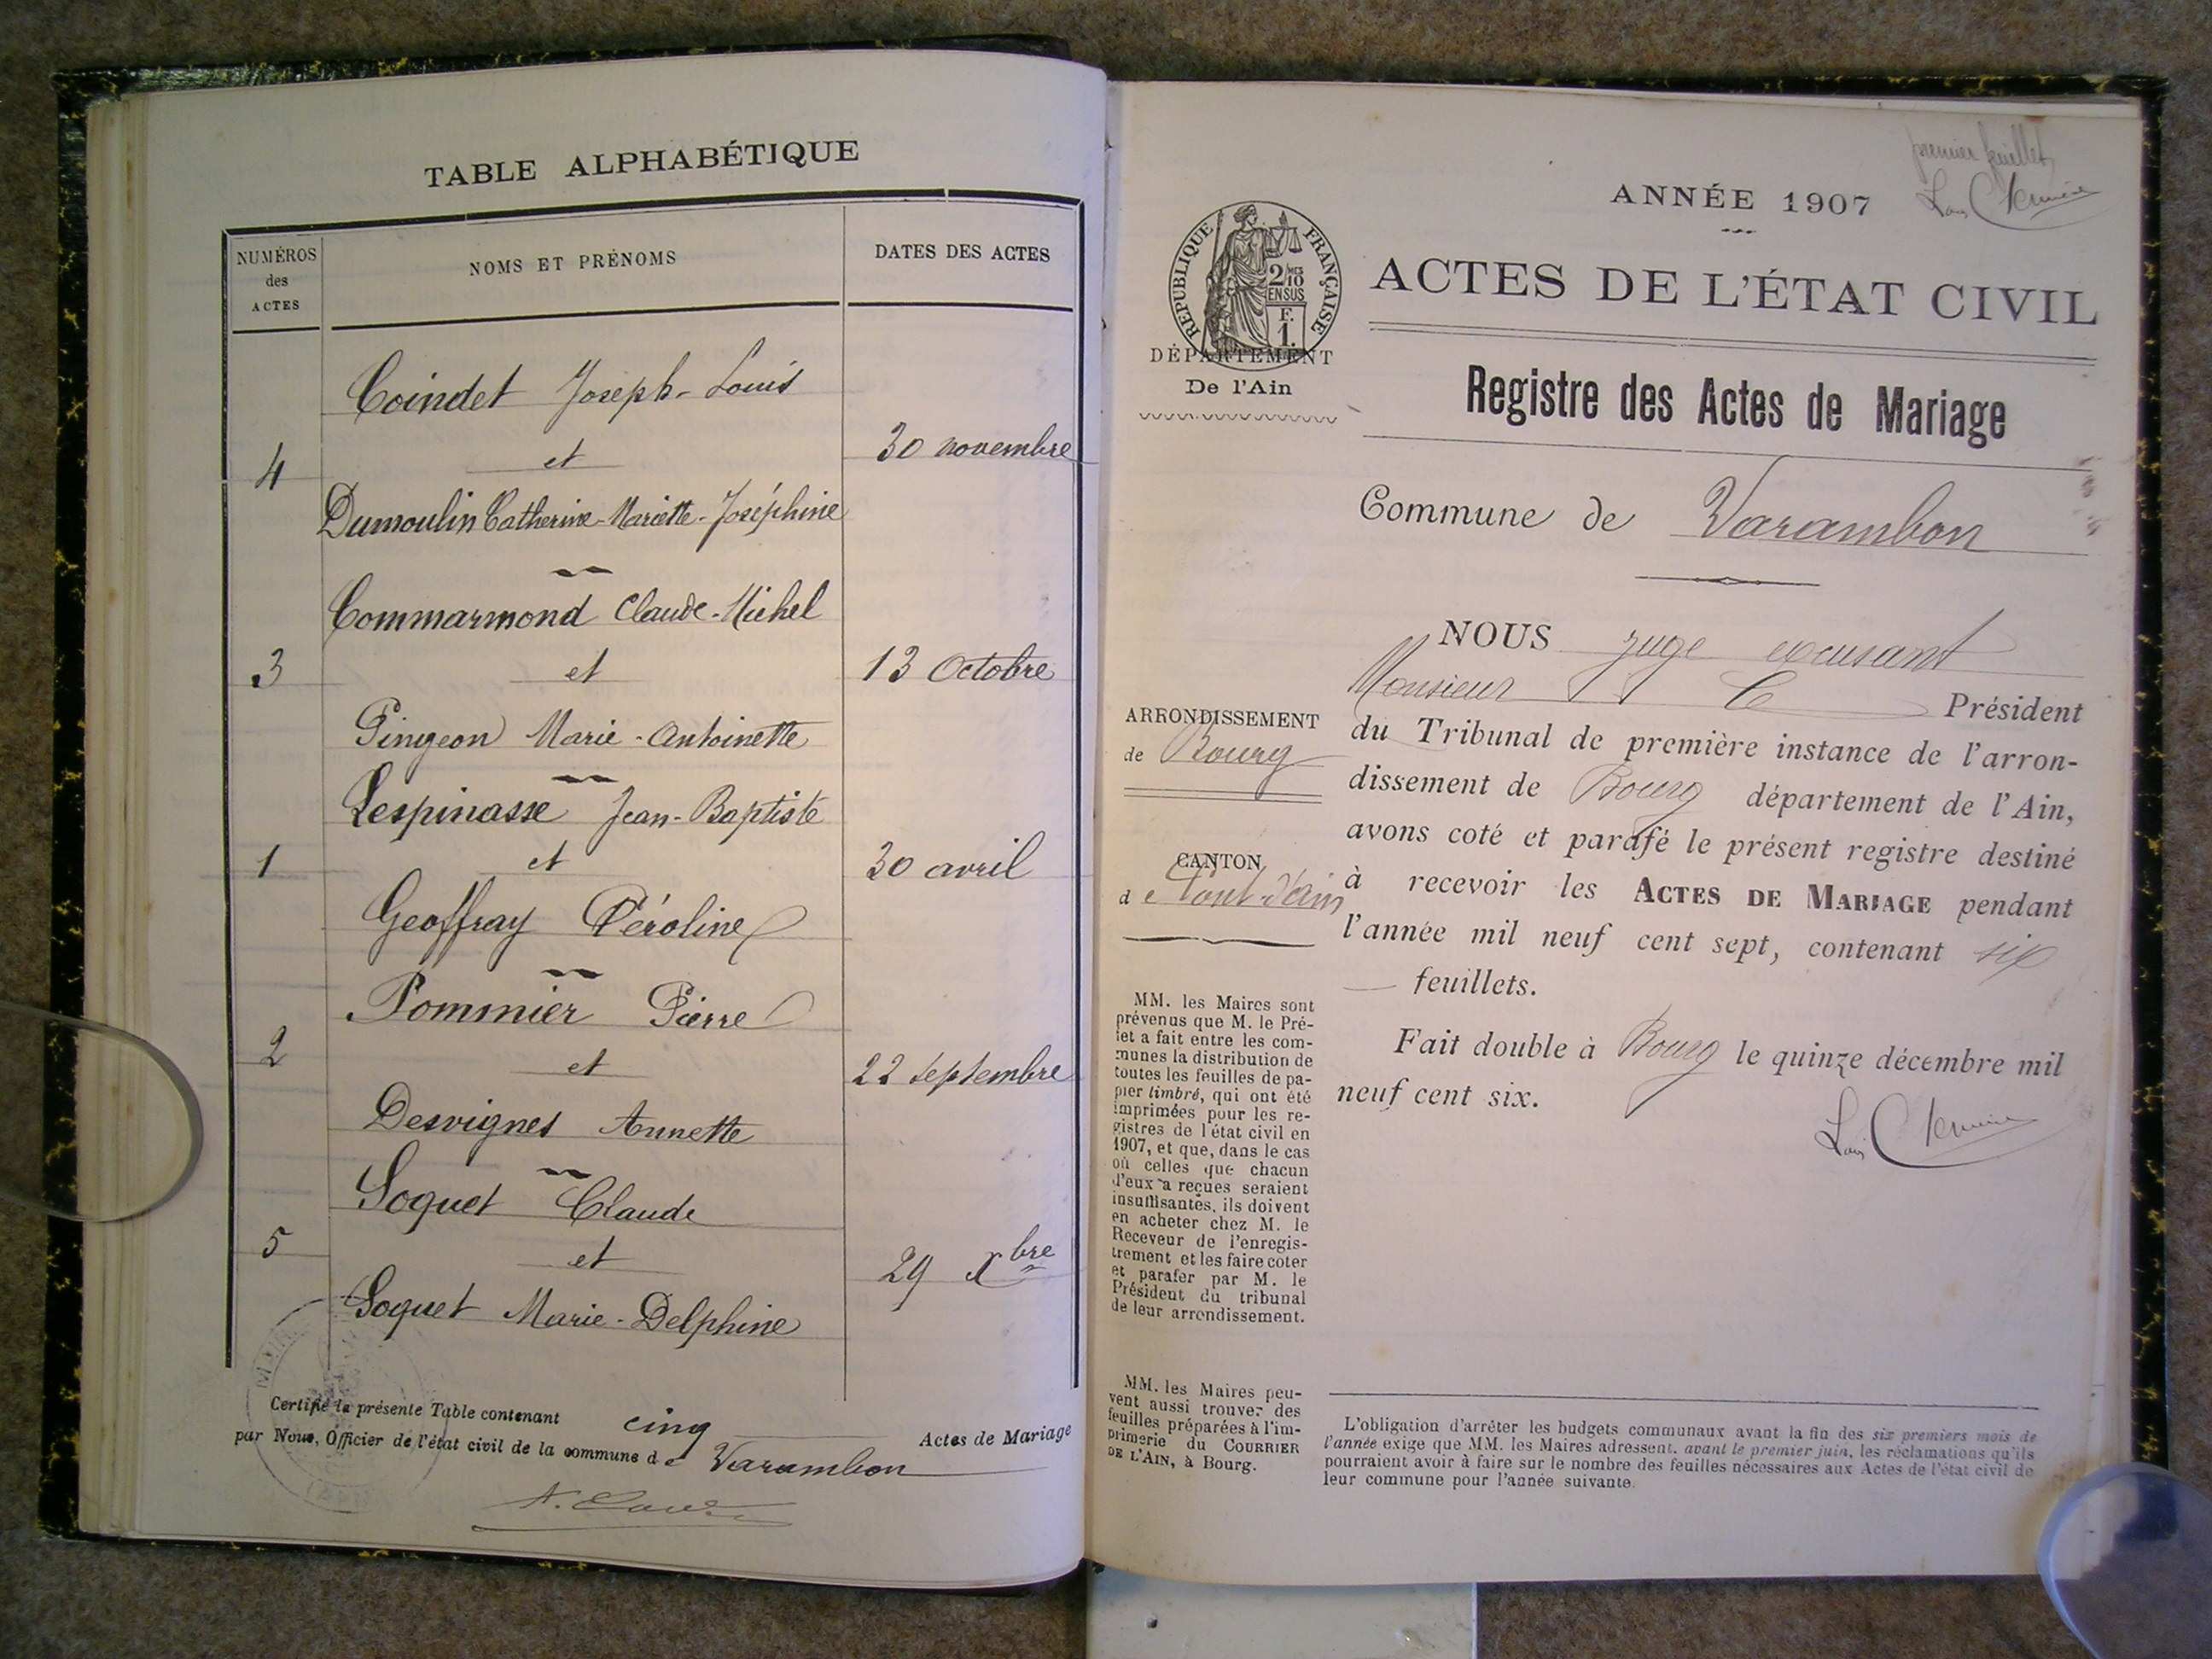 TABLE ALPHABÉTIQUE
NUMÉROS
des
ACTES
NOMS ET PRÉNOMS
DATES DES ACTES
Coindet Joseph-Louis
4 et 30 novembre
Dumoulin Catherine-Mariette-Joséphine
Commarmond Claude-Michel
3 et 13 Octobre
Pingeon Marie-Antoinette
Lespinasse Jean-Baptiste
1 et 30 avril
Geoffray Péroline
Pommier Pierre
2 et 22 septembre
Desvignes Annette
Soquet Claude
5 et 29 Xbre
Soquet Marie-Delphine
Certifié la présente Table contenant cinq Actes de Mariage
par Nous, Officier de l'état civil de la commune de Varambon
premier feuillet
ANNÉE 1907
RÉPUBLIQUE FRANÇAISE
2/10 MES
EN SUS
F.
1.
ACTES DE L'ÉTAT CIVIL
DÉPARTEMENT
De l'Ain
Registre des Actes de Mariage
Commune de Varambon
NOUS juge excusant
Monsieur le Président
du Tribunal de première instance de l'arron-
dissement de Bourg département de l'Ain,
avons coté et parafé le présent registre destiné
à recevoir les ACTES DE MARIAGE pendant
l'année mil neuf cent sept, contenant six
feuillets.
Fait double à Bourg le quinze décembre mil
neuf cent six.
ARRONDISSEMENT
de Bourg
CANTON
de Pont-d'Ain
MM. les Maires sont
prévenus que M. le Pré-
fet a fait entre les com-
munes la distribution de
toutes les feuilles de pa-
pier timbré, qui ont été
imprimées pour les re-
gistres de l'état civil en
1907, et que, dans le cas
où celles que chacun
d'eux a reçues seraient
insuffisantes, ils doivent
en acheter chez M. le
Receveur de l'enregis-
trement et les faire coter
et parafer par M. le
Président du tribunal
de leur arrondissement.
MM. les Maires peu-
vent aussi trouver des
feuilles préparées à l'im-
primerie du COURRIER
DE L'AIN, à Bourg.
L'obligation d'arrêter les budgets communaux avant la fin des six premiers mois de
l'année exige que MM. les Maires adressent, avant le premier juin, les réclamations qu'ils
pourraient avoir à faire sur le nombre des feuilles nécessaires aux Actes de l'état civil de
leur commune pour l'année suivante.